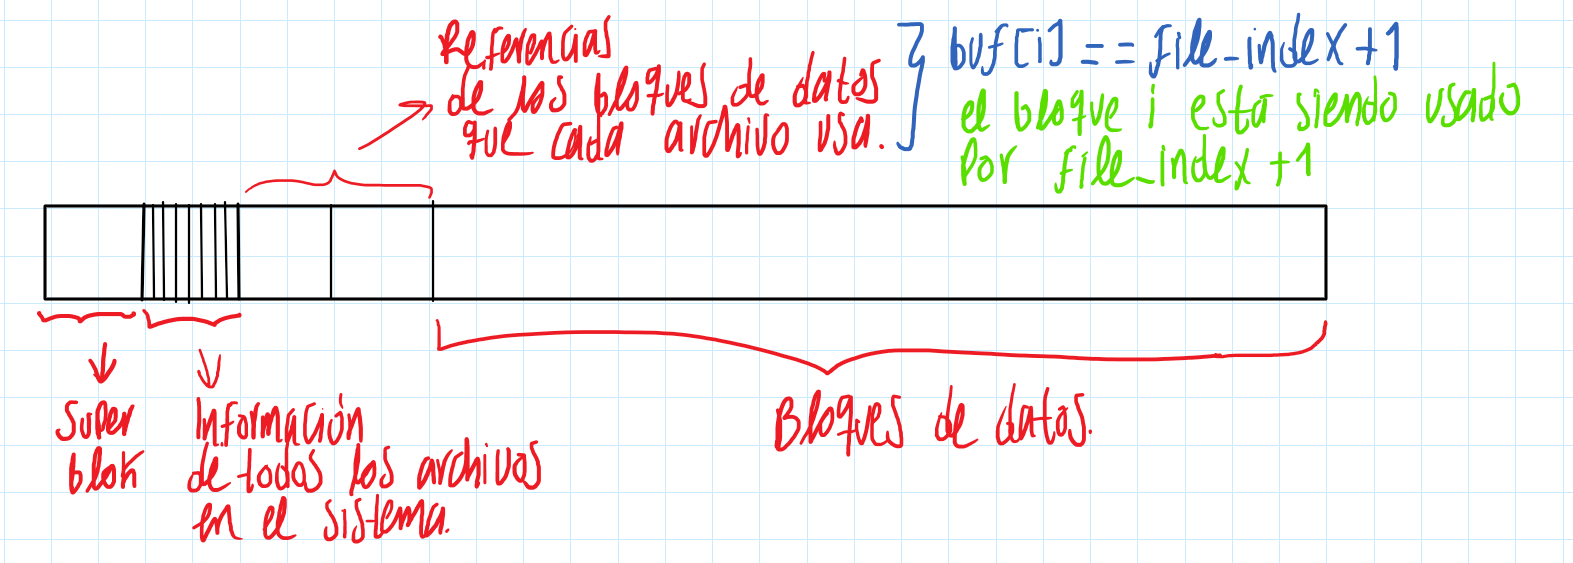 Referencias
de los bloques de datos
que cada archivo usa.
buf[i] == file_index+1
el bloque i esta siendo usado
por file_index +1
Super
blok
Información
de todos los archivos
en el sistema.
Bloques de datos.